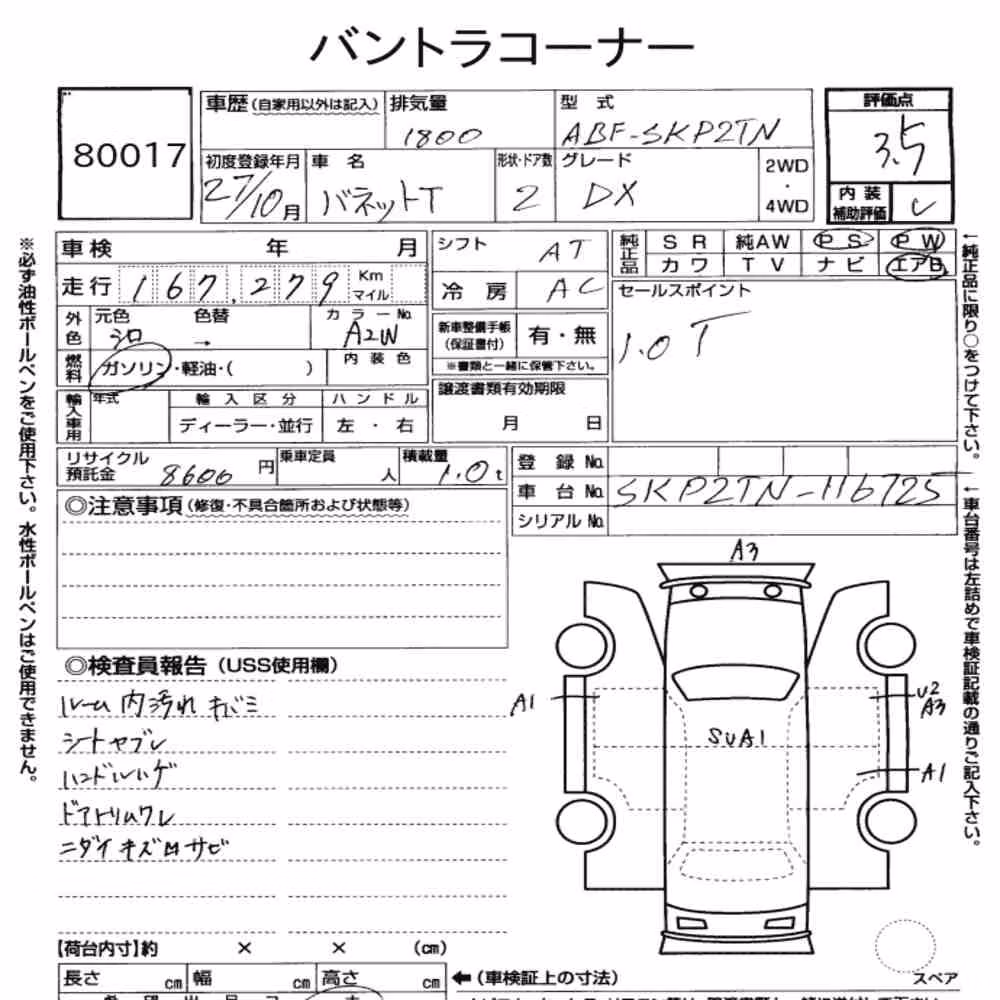 バントラコーナー
80017
車歴(自家用以外は記入) 排気量 型 式 評価点
1800 ABF-SKP2TN 3.5
初度登録年月 車 名 形状・ドア数 グレード 2WD・4WD
27/10月 バネットT 2 DX
内装補助評価 C
車検 年 月
シフト AT
純正品 SR 純AW PS PW
カワ TV ナビ エアB
走行 167,279 Km マイル
冷房 AC
セールスポイント
1.0T
外色 元色 色替 カラーNo.
シロ → A2W
新車整備手帳(保証書付) 有・無
※書類と一緒に保管下さい。
燃料 ガソリン・軽油・( ) 内装色
譲渡書類有効期限
月 日
輸入車用 年式 輸入区分 ハンドル
ディーラー・並行 左・右
リサイクル預託金 8600円 乗車定員 人 積載量 1.0t
登録No.
車台No. SKP2TN-116725
シリアルNo.
◎注意事項(修復・不具合箇所および状態等)
◎検査員報告(USS使用欄)
ルーム内汚れ キバミ
シートヤブレ
ハンドルハゲ
ドアトリムワレ
ニダイ キズ凹サビ
A3
A1
U2
A3
SUA1
A1
【荷台内寸】約 × × (cm)
長さ cm 幅 cm 高さ cm
←(車検証上の寸法)
スペア
※必ず油性ボールペンをご使用下さい。水性ボールペンはご使用できません。
←純正品に限り○をつけて下さい。
←車台番号は左詰めで車検証記載の通りご記入下さい。